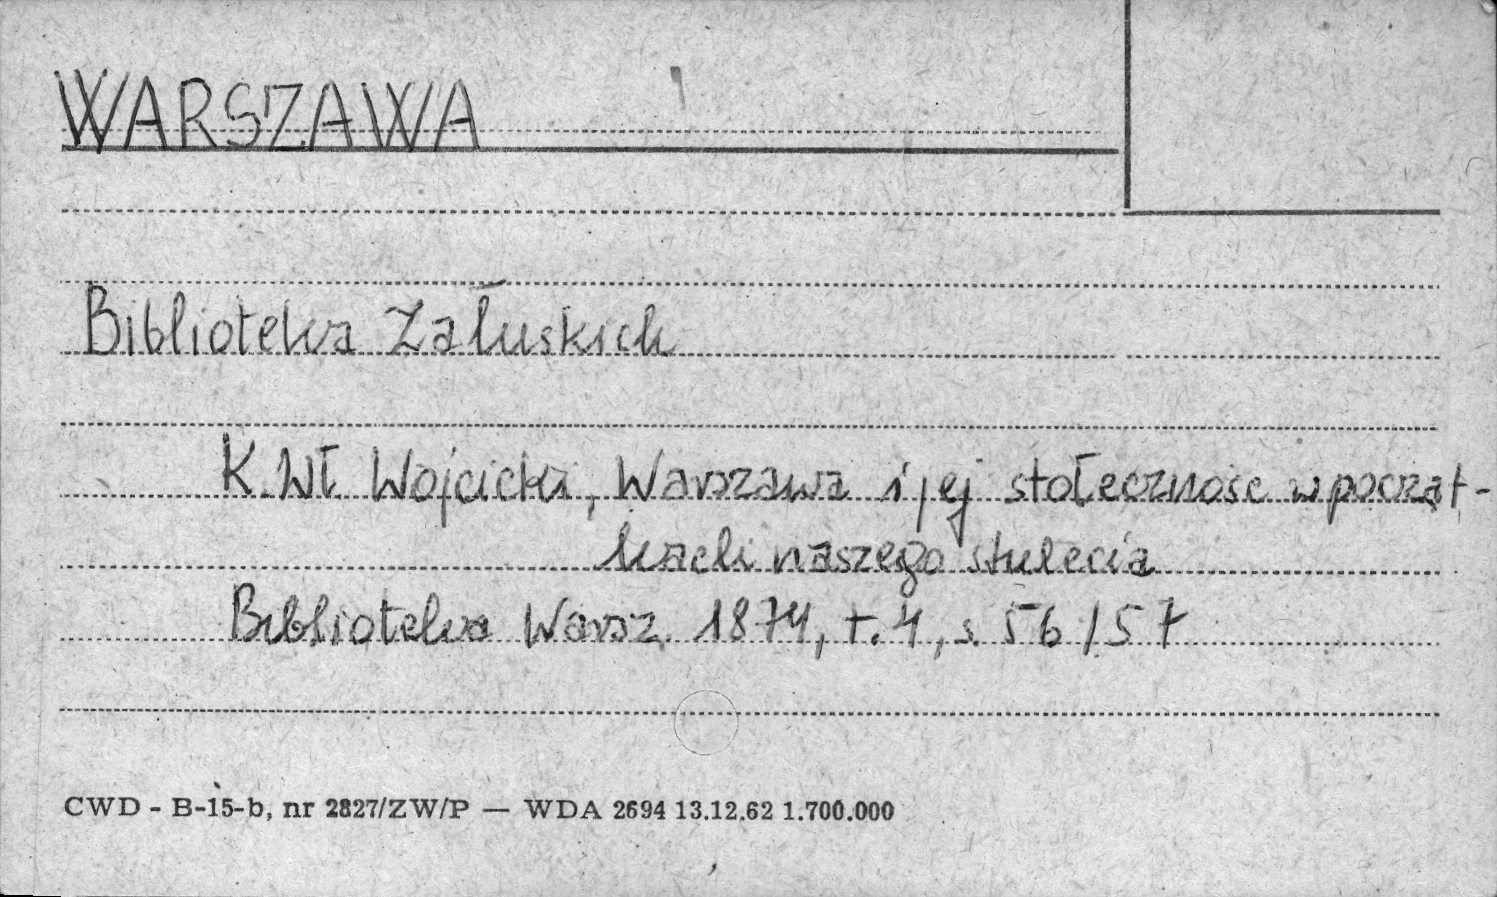 WARSZAWA
Biblioteka Załuskich
K. Wł Wojcicki, Warszawa i jej stołeczność w począt-
kach naszego stulecia
Biblioteka Warsz. 1874, t. 4, s. 56/57
CWD - B-15-b, nr 2827/ZW/P — WDA 2694 13.12.62 1.700.000